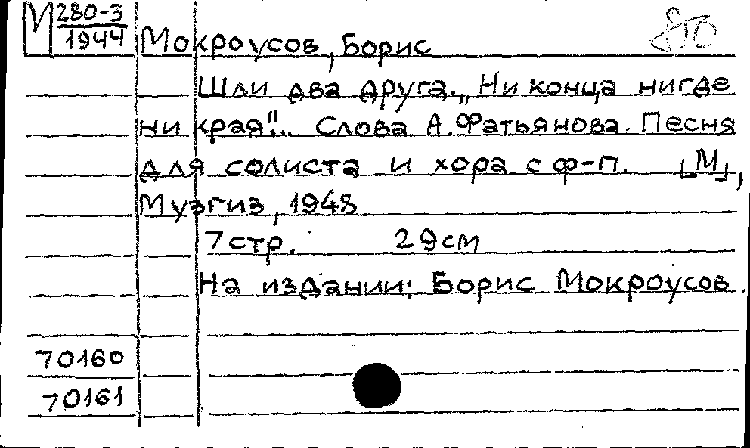 М 280-3
1944
Мокроусов, Борис
Шли два друга. „Ни конца нигде
ни края"... Слова А. Фатьянова. Песня
для солиста и хора с ф-п. [М],
Музгиз, 1948
7 стр. 29 см
На издании: Борис Мокроусов.
70160
70161